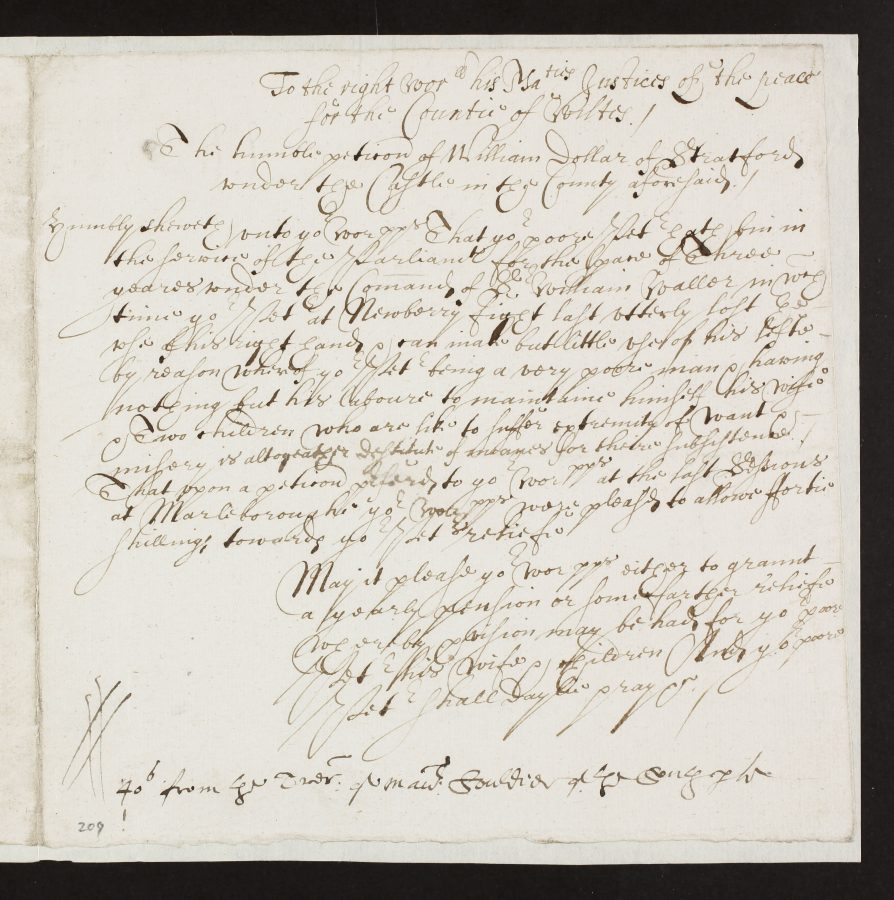 To the right wor:ll his Maties Justices of the peace
for the Countie of Wiltes./
The humble peticon of William Dollar of Stratford
under the Castle in the County aforesaid./
Humbly sheweth unto yor worpps That yor poore Petr hath bin in
the service of the Parliamt for the space of Three
yeares under the Comand of Sr William Waller in wch
time yor Petr at Newberry fight last utterly lost the
use of his right hand & can make but little use of his lefte
by reason whereof yor Petr being a very poore man & having
nothing but his laboure to maintaine himself his wife
& Two children who are like to suffer extremity of want &
misery, is altogeather destitute of meanes for theire subsistence./
That upon a peticon preferd to yor Worpps at the last Sessions
at Marleborough yor Worpps were pleased to allowe fortie
shillings towards yor Petrs reliefe
May it please yor Worpps either to graunt
a yearly pension or some farther reliefe
whereby pvision may be had for yor poore
Petr his wife & children And yor poore
Petr shall daylie pray &c./
40s from the Trer: of maid Souldier of the South pte
209